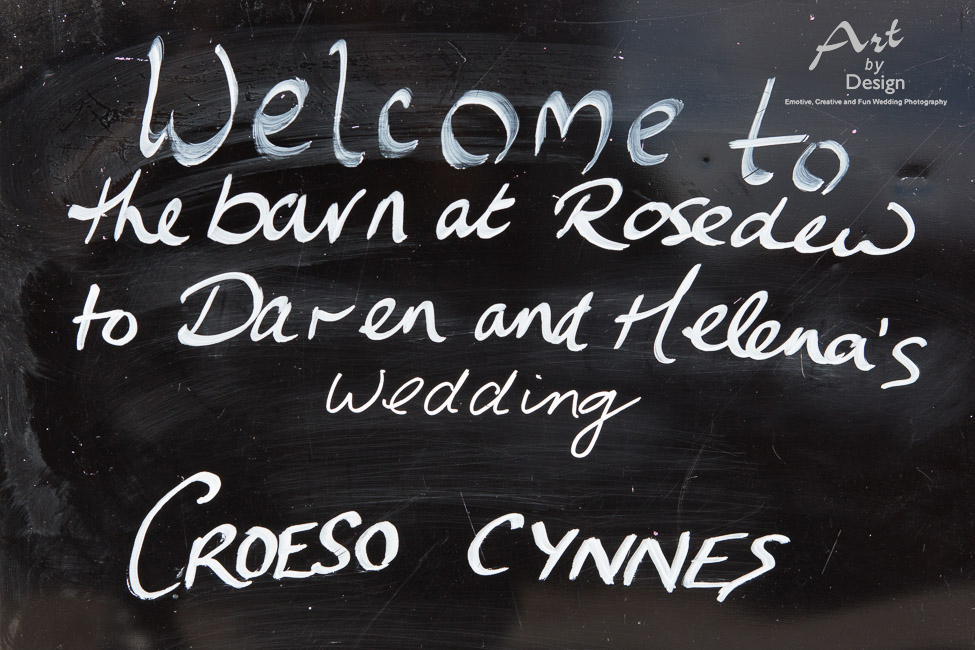 Art
by
Design
Emotive, Creative and Fun Wedding Photography
Welcome to
the barn at Rosedew
to Daren and Helena's
wedding
CROESO CYNNES